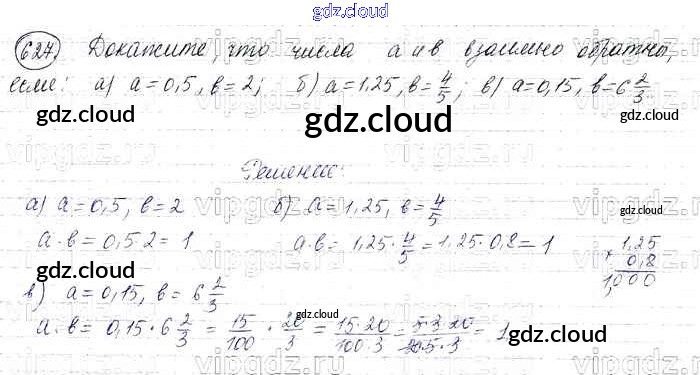 gdz.cloud
627. Докажите, что числа a и в взаимно обратны,
если: а) a = 0,5, в = 2; б) a = 1,25, в = 4/5; в) a = 0,15, в = 6 2/3
gdz.cloud gdz.cloud
gdz.cloud
Решение:
а) a = 0,5, в = 2 б) a = 1,25, в = 4/5
gdz.cloud
a · в = 0,5 · 2 = 1 a · в = 1,25 · 4/5 = 1,25 · 0,8 = 1
1,25
× 0,8
1,000
gdz.cloud
в) a = 0,15, в = 6 2/3
gdz.cloud
a · в = 0,15 · 6 2/3 = 15/100 · 20/3 = 15·20/100·3 = 5·3·20/20·5·3 = 1
gdz.cloud
gdz.cloud